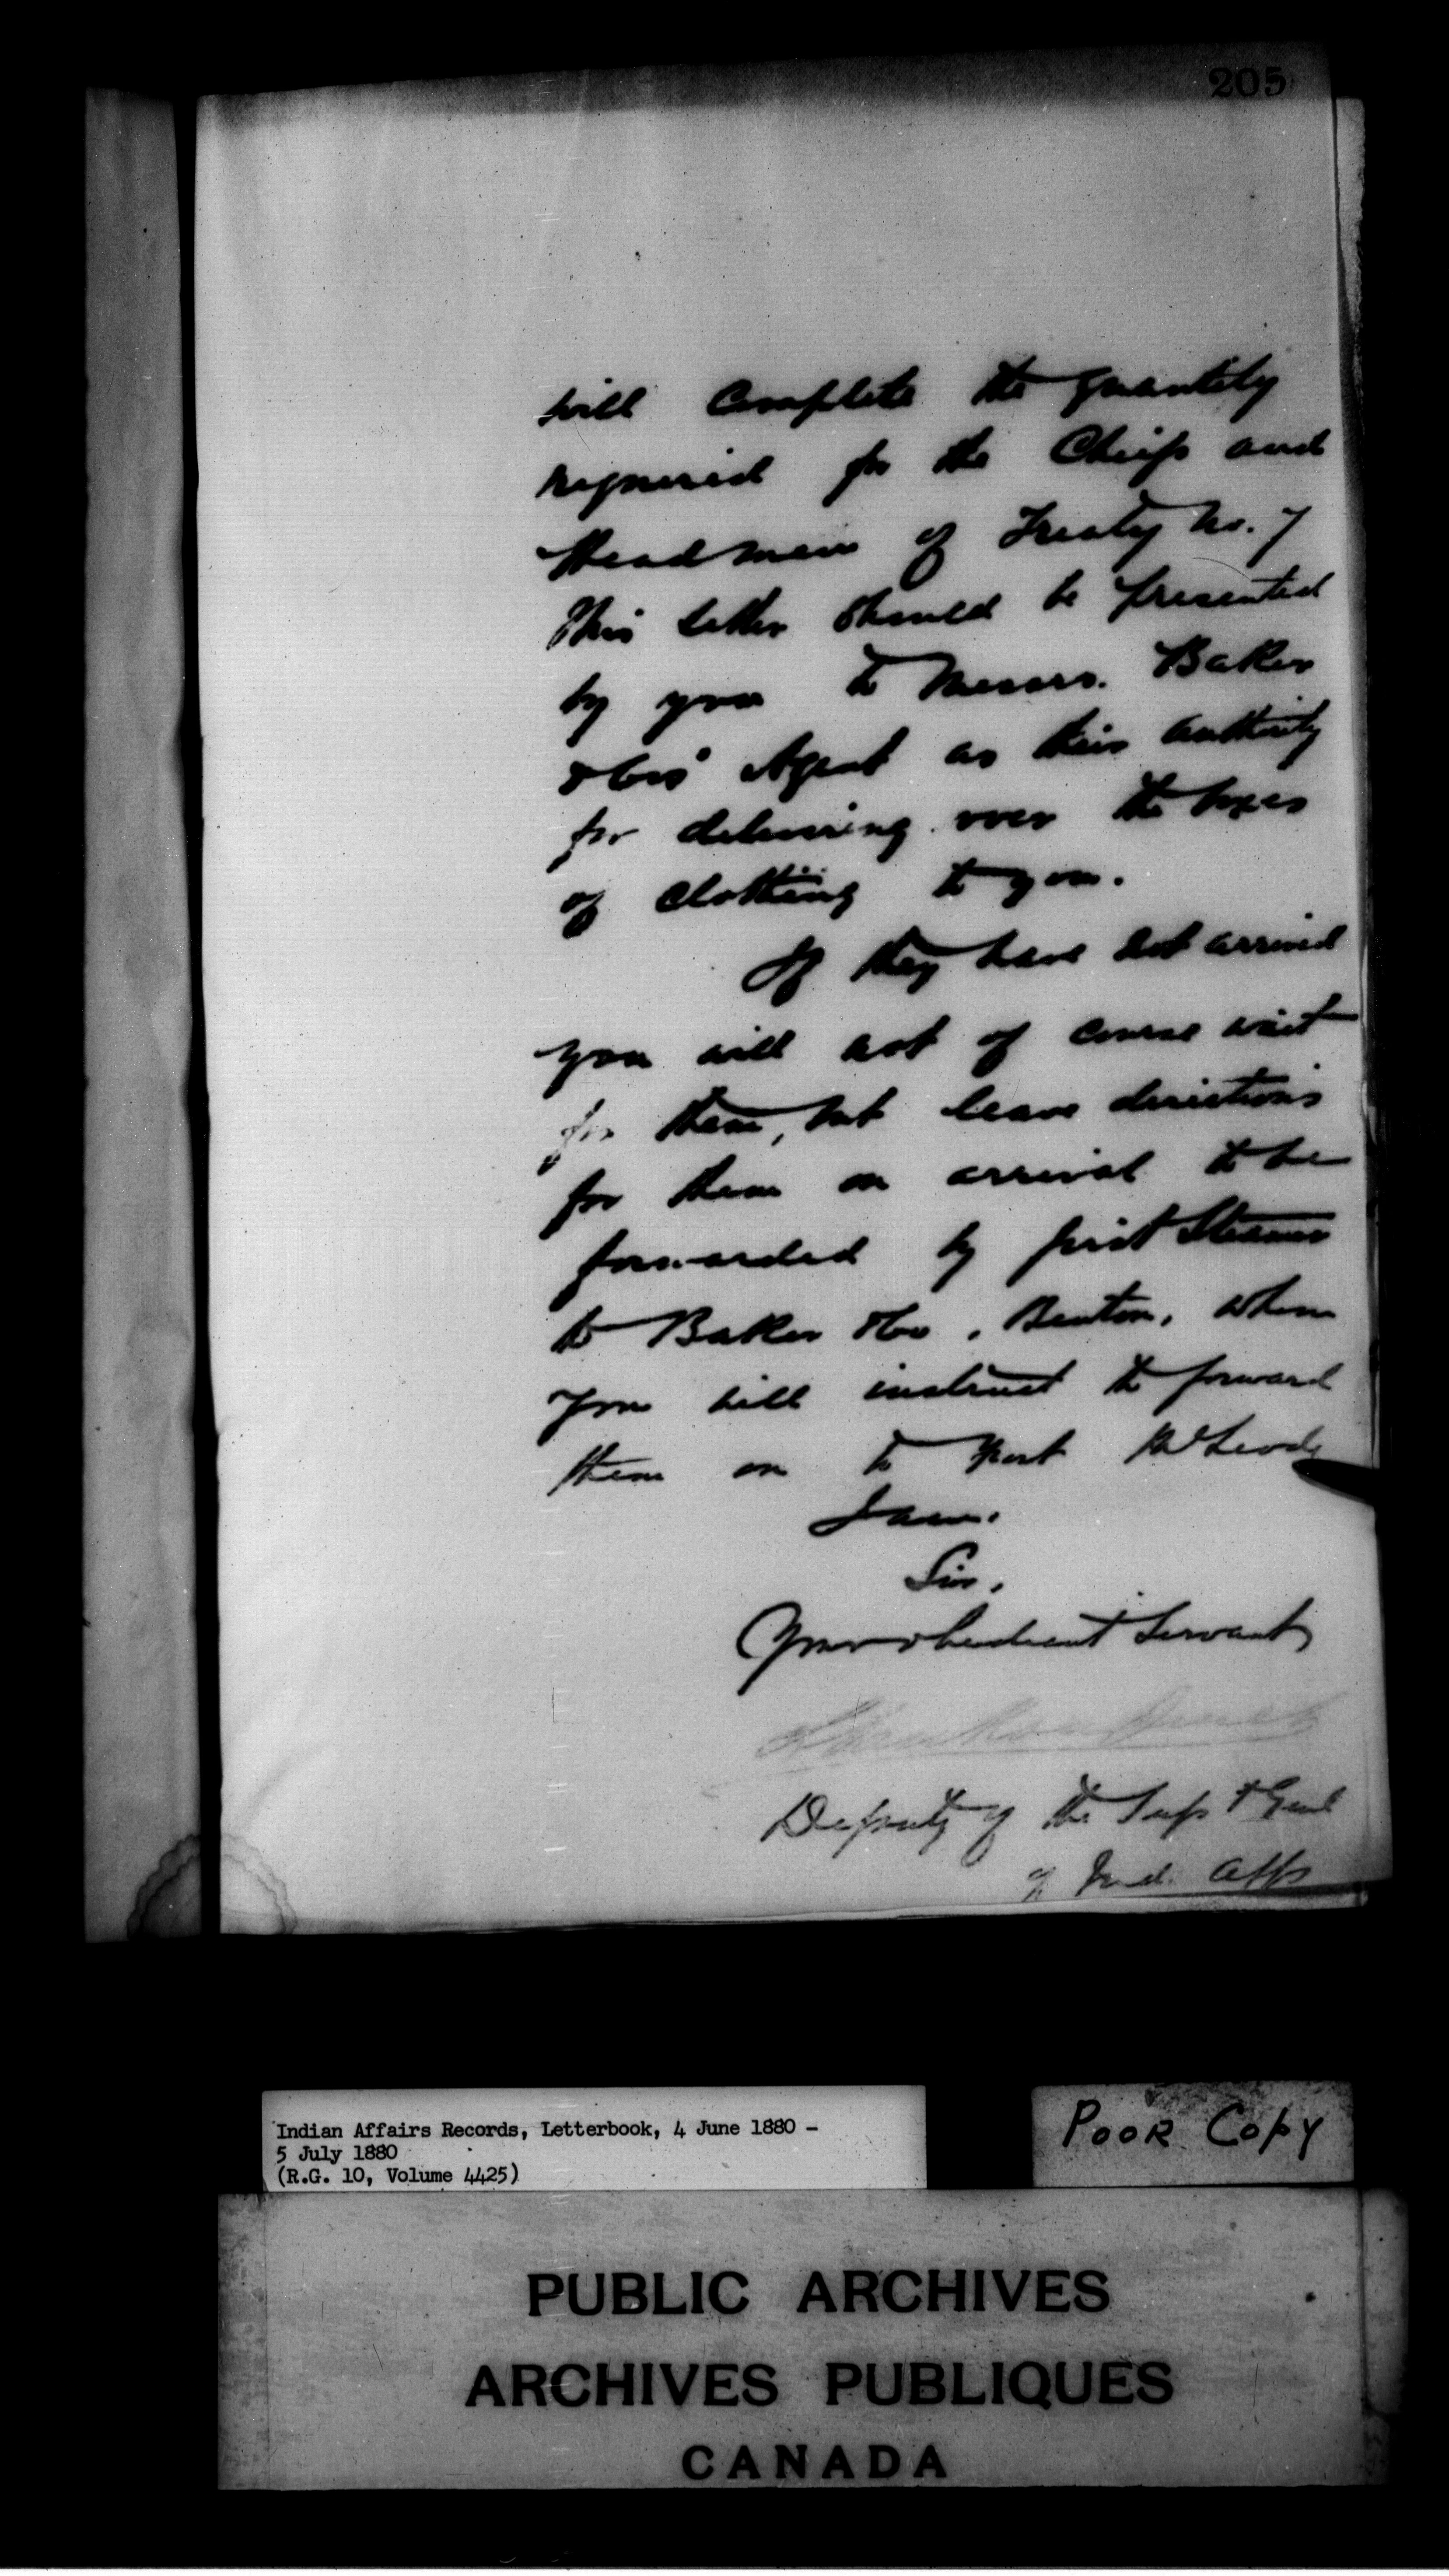 205
will complete the quantity
required for the Chiefs and
Headmen of Treaty No. 7
This letter should be presented
by you to Messrs. Baker
& Cos' Agent as their authority
for delivering over the boxes
of clothing to you.
If they have not arrived
you will not of course wait
for them, but leave directions
for them on arrival to be
forwarded by first Steamer
to Baker & Co, Benton, whom
you will instruct to forward
them on to Fort McLeod,
I am.
Sir,
Your obedient Servant
Deputy of the Supt Genl
of Ind. Affs
Indian Affairs Records, Letterbook, 4 June 1880 -
5 July 1880
(R.G. 10, Volume 4425)
POOR Copy
PUBLIC ARCHIVES
ARCHIVES PUBLIQUES
CANADA